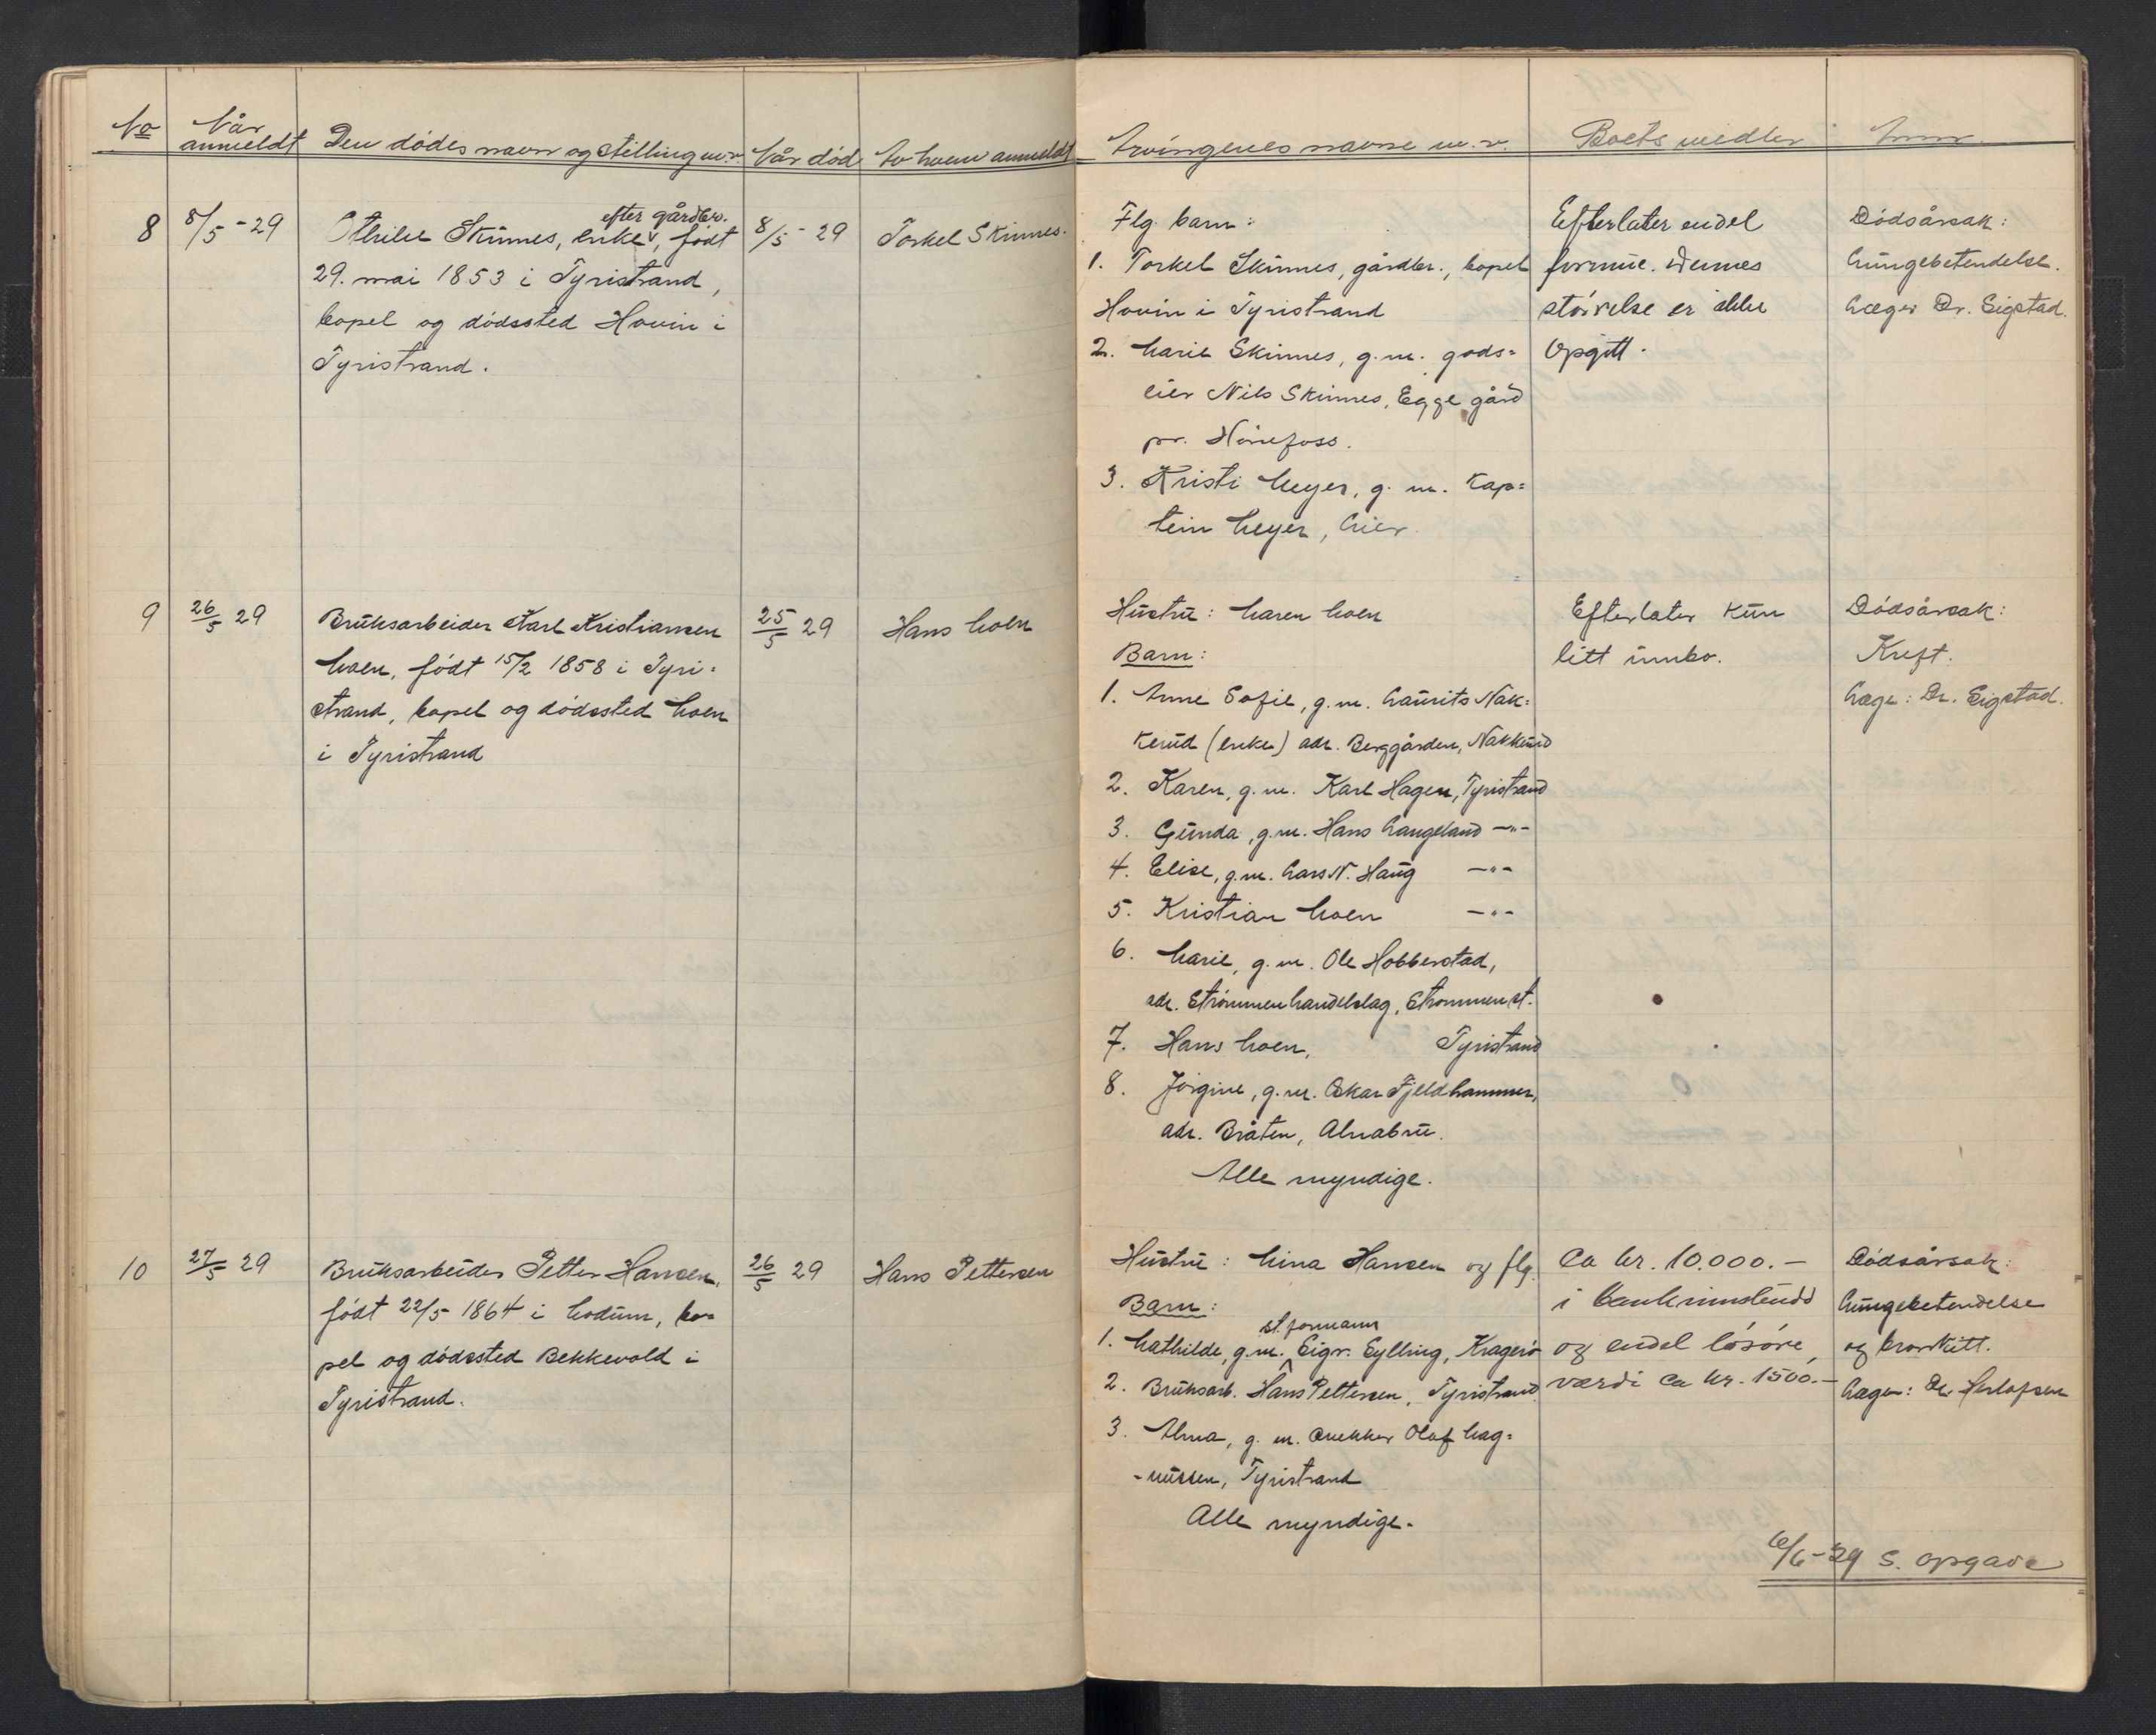 No
Når anmeldt
Den dødes navn og stilling m.v.
Når død
Av hvem anmeldt
Arvingenes navne m.v.
Boets midler
Anm.
8
8/5-29
Othilie Skinnes, enke efter gårdbr., født
29. mai 1853 i Tyristrand,
bopel og dødssted Hovin i
Tyristrand.
8/5-29
Torkel Skinnes.
Flg. barn:
1. Torkel Skinnes, gårdbr., bopel
Hovin i Tyristrand
2. Marie Skinnes, g.m. gods=
eier Nils Skinnes, Egge gård
pr. Hønefoss.
3. Kristi Meyer, g. m. Kap=
tein Meyer, hier.
Efterlater endel
formue. Dennes
størrelse er ikke
opgitt.
Dødsårsak:
Lungebetendelse.
Læge: Dr. Sigstad.
9
26/5 29
Bruksarbeider Karl Kristiansen
Moen, født 15/2 1858 i Tyri=
strand, bopel og dødssted Moen
i Tyristrand
25/5 29
Hans Moen
Hustru: Maren Moen
Barn:
1. Anne Sofie, g.m. Laurits Nak=
kerud (enke) adr. Berggården, Nakkerud
2. Karen, g.m. Karl Hagen, Tyristrand
3. Gunda, g.m. Hans Langeland -"-
4. Elise, g.m. Lars N. Haug -"-
5. Kristian Moen -"-
6. Marie, g.m. Ole Hobberstad,
adr. Strømmen handelslag, Strømmen st.
7. Hans Moen, Tyristrand
8. Jørgine, g.m. Oskar Fjeldhammer,
adr. Bråten, Alnabru.
Alle myndige.
Efterlater kun
litt innbo.
Dødsårsak:
Kreft.
Læge: Dr. Sigstad.
10
27/5 29
Bruksarbeider Petter Hansen,
født 22/5 1864 i Modum, bo=
pel og dødssted Bekkevold i
Tyristrand.
26/5 29
Hans Pettersen
Hustru: Mina Hansen og flg.
Barn:
1. Mathilde, g.m. st.formann Sigv. Gylling, Kragerø
2. Bruksarb. Hans Pettersen, Tyristrand
3. Alma, g. m. snekker Olaf Mag=
-nussen, Tyristrand
Alle myndige.
Ca kr. 10.000.-
i bankinnskudd
og endel løsøre,
værdi ca kr. 1500.-
Dødsårsak:
Lungebetendelse
og bronkitt.
Læge: Dr. Herlofsen
6/6-29 S. opgave